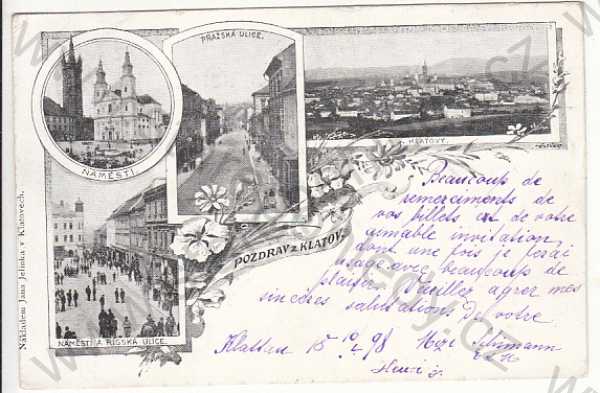 PRAŽSKÁ ULICE.
NÁMĚSTÍ
KLATOVY.
NÁMĚSTÍ A ŘÍŠSKÁ ULICE.
POZDRAV Z KLATOV.
Nákladem Jana Jelínka v Klatovech.
Beaucoup de
remerciments de
vos billets et de votre
aimable invitation,
dont une fois je ferai
usage avec beaucoup de
plaisir. Veuillez agréer mes
sincères salutations de votre
Klattau 15 10/4 98